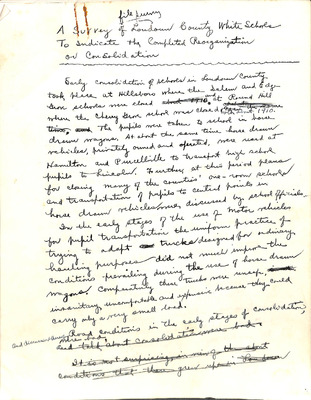 file survey
A Survey of Loudoun County White Schools
To Indicate the Completed Reorganization
or Consolidation
Early consolidation of schools in Loudoun County
took place at Hillsboro where the Salem and Edge
Grove schools were closed about 1910, at Round Hill
where the Cherry Grove school was closed
and about 1910.
The pupils were taken to school in horse
drawn wagons. At about the same time horse drawn
vehicles, privately owned and operated, were used at
Hamilton and Purcellville to transport high school
pupils to Lincoln. Further, at this period plans
for closing many of the counties' one-room schools
and transportation of pupils to central points in
horse drawn vehicles were discussed by school officials.
In the early stages of the use of motor vehicles
for pupil transportation the uniform practice of
trying to adapt trucks designed for ordinary
hauling purposes did not much improve the
conditions prevailing during the use of horse drawn
wagons. Comparatively these trucks were unsafe,
unsanitary, uncomfortable and expensive because they could
carry only a very small load.
Road conditions in the early stages of consolidation
were bad.
and talk about consolidation were bad.
It is not surprising in view of the about
conditions that there grew up in Loudoun